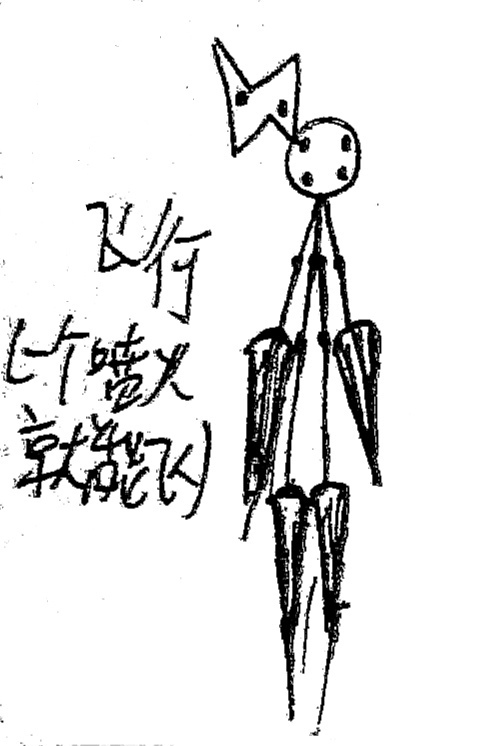 飞行
(一个喷火
就能飞)